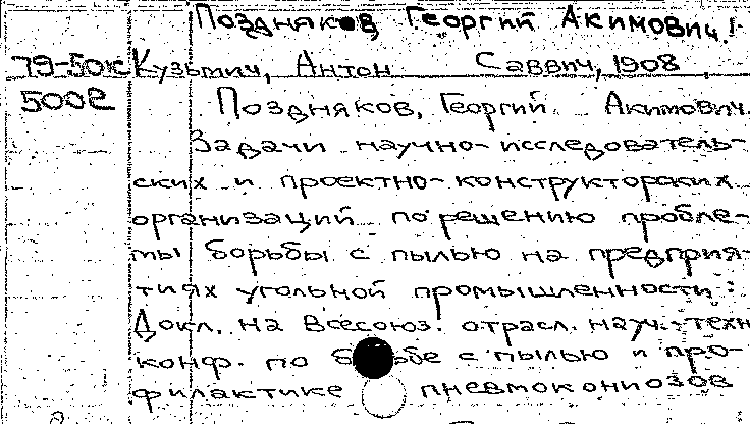 Поздняков, Георгий Акимович!
79-50к Кузьмич, Антон Саввич, 1908
500е Поздняков, Георгий Акимович.
Задачи научно-исследователь-
ских и проектно-конструкторских
организаций по решению пробле-
мы борьбы с пылью на предприя-
тиях угольной промышленности:
Докл. на Всесоюз. отрасл. науч.-техн
конф. по с пылью и про-
филактике пневмокониозов